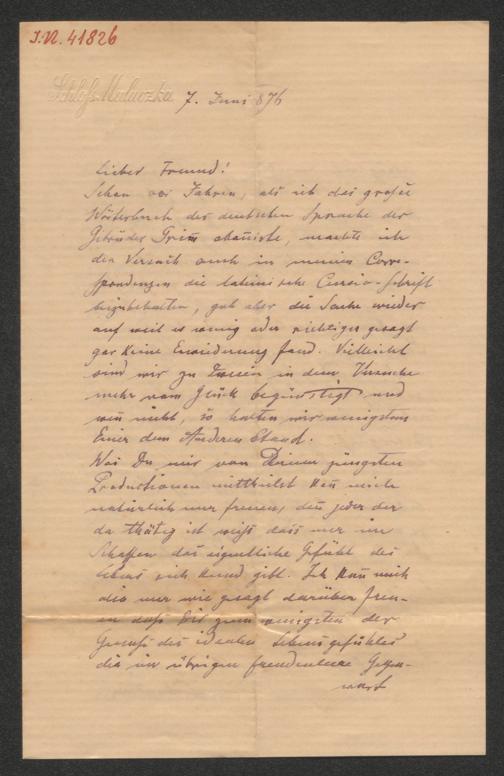 I.N. 41826
Schloss-Malaczka 7. Juni 876
Lieber Freund!
Schon vor Jahren, als ich das große
Wörterbuch der deutschen Sprache der
Gebrüder Grimm, machte ich
den Versuch auch in meinen Corre-
spondenzen die lateinische Cursiv-Schrift
beizubehalten, gab aber die Sache wieder
auf weil es wenig oder richtiger gesagt
gar keine Erwiederung fand. Vielleicht
sind wir zu Zweien in dem Versuche
mehr vom Glück begünstigt und
wenn nicht, so halten wir wenigstens
Einer dem Anderen Stand.
Was Du mir von Deinen jüngsten
Productionen mittheilst kann mich
natürlich nur freuen, denn jeder der
da thätig ist weiß dass nur im
Schaffen das eigentliche Gefühl des
Lebens sich kund gibt. Ich kann mich
also nur wie gesagt darüber freu-
en daß Dir wenigstens der
Genuß des idealen Lebensgefühles
die im übrigen freudenleere Gegen-
wart